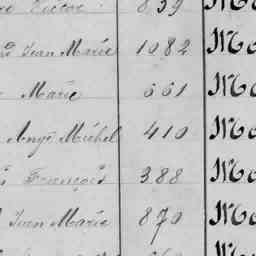 839 Mo
Jean Marie 1082 Mo
Marie 661 Mo
Ange Michel 410 Mo
François 388 Mo
Jean Marie 870 Mo